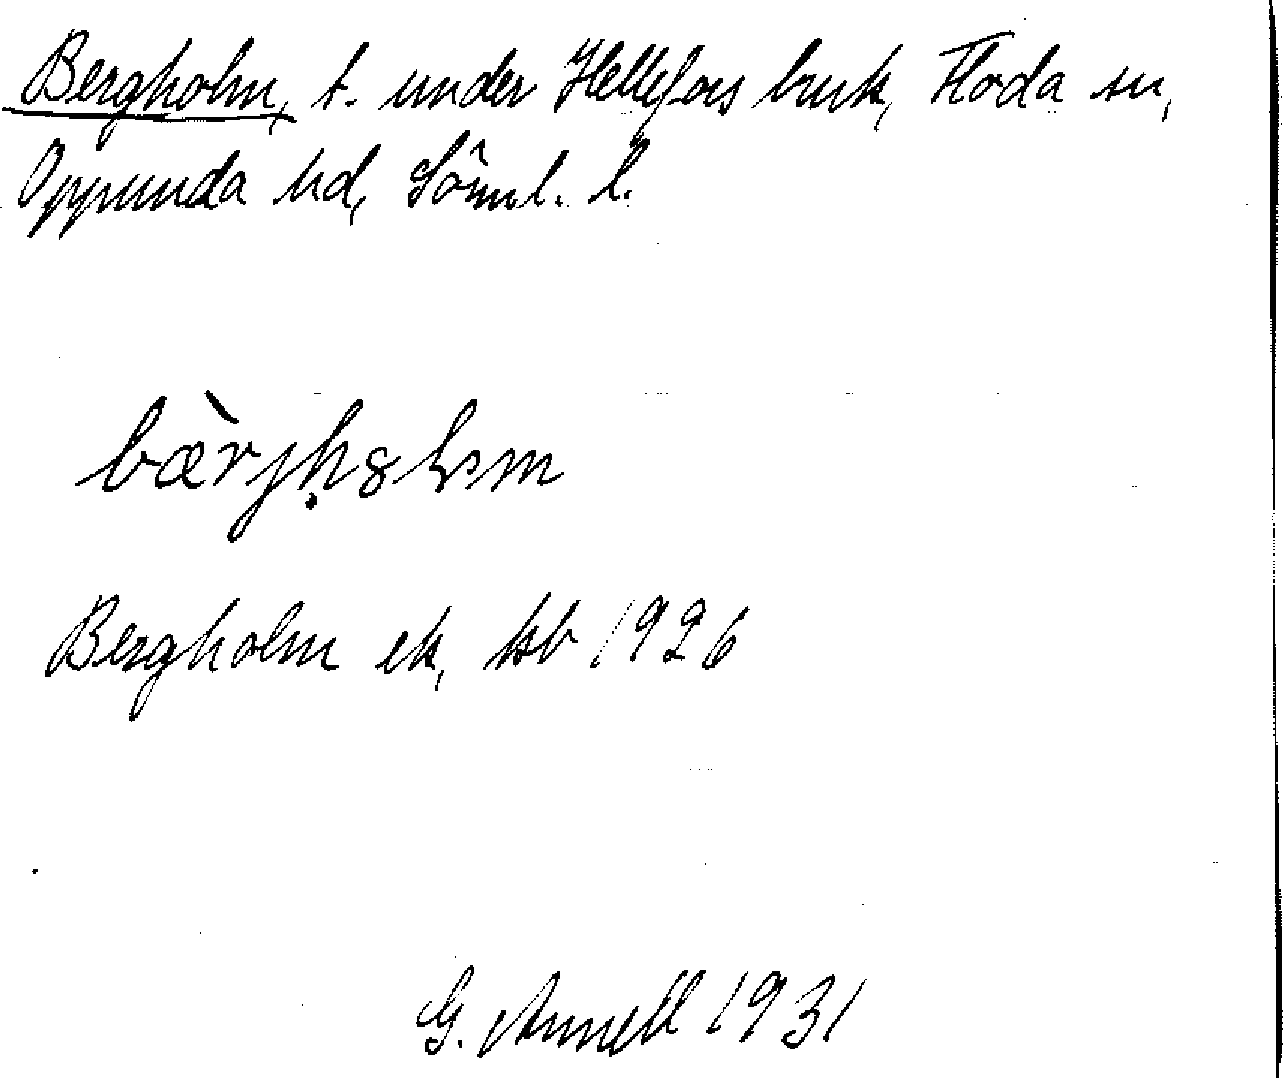 Bergholm, t. under Hellefors bruk, Floda sn,
Oppunda hd, Söml. l.
bæ̀rjḥ8lm
Bergholm ek, kb 1926
G. Annell 1931